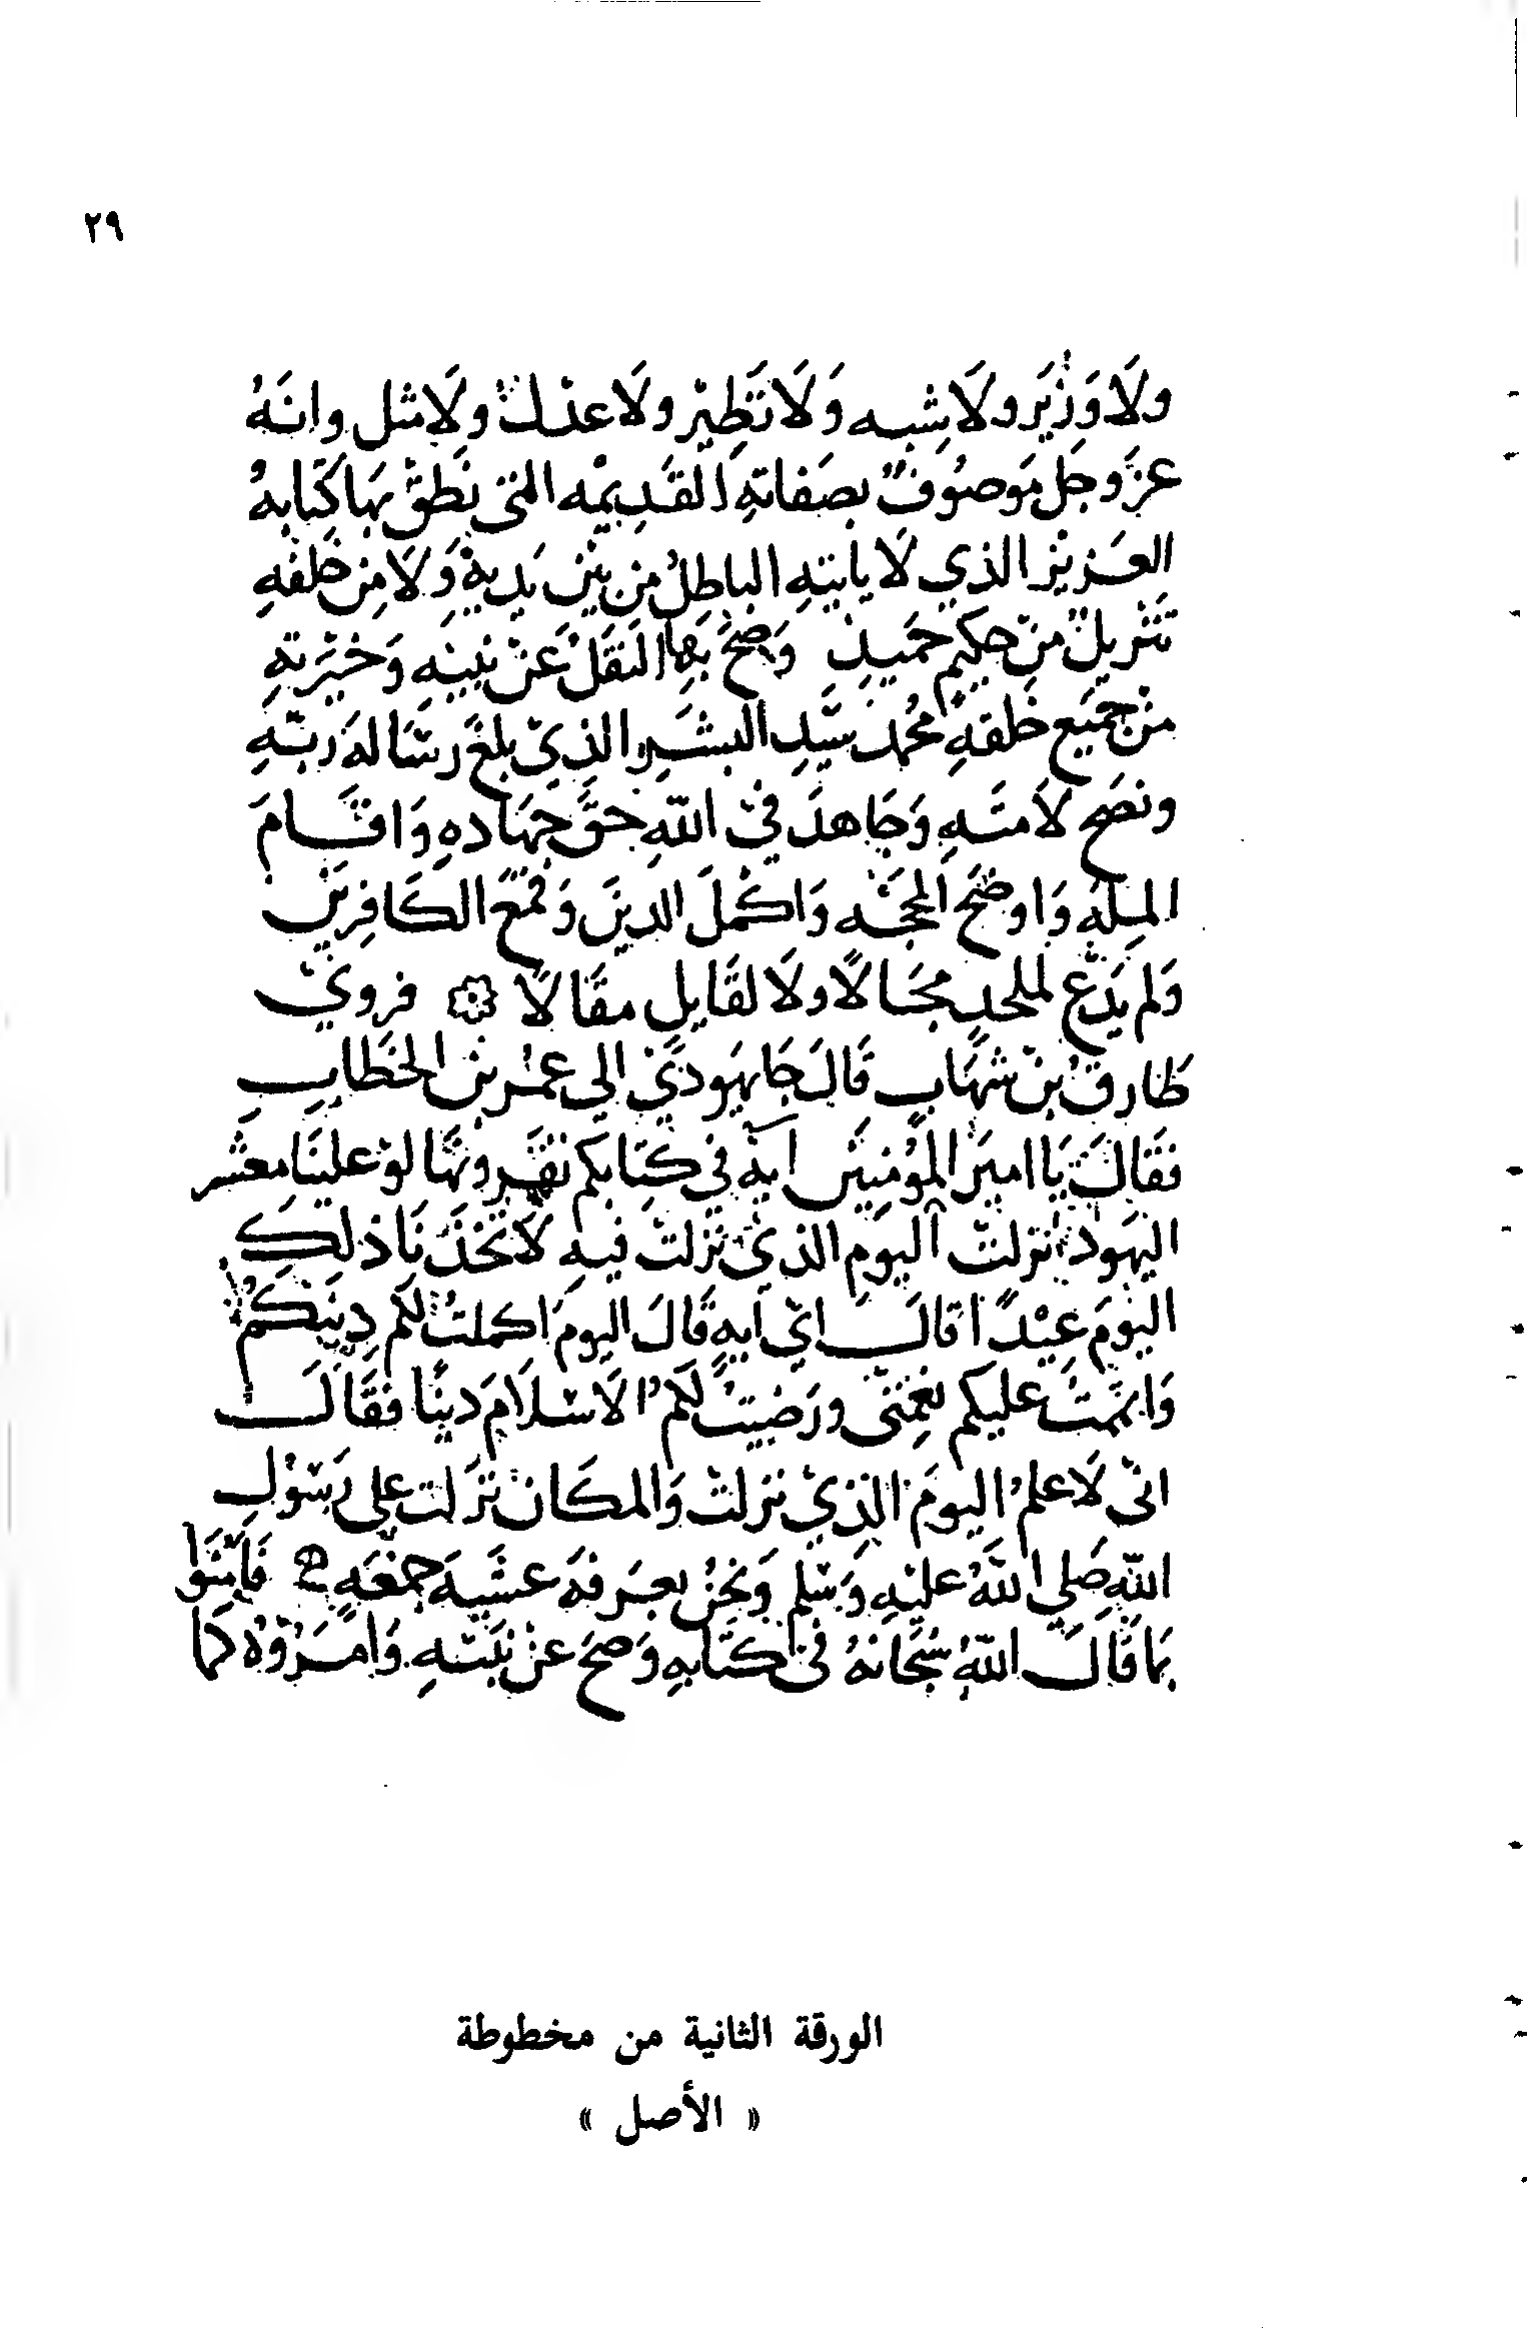 ٢٩
ولَا وَزِيَر ولَا شِبه وَلَا نَظِيْر ولَا عدْلٌ ولَا مثل وانَهُ
عزَ وجَل مَوصُوفٌ بصَفاتهِ القَدِيْمه التى نَطقْ بهَا كِتابهُ
العَزيْز الذي لَا يأتيَهِ الباطِلُ مِن بيْن يَديهْ وَلَا مِن خَلفهِ
تَنْزيلٌ مِن حكيمٍ حَميدٍ وَصَحَ بهَا النَقَلُ عَنْ نَبيْهِ وَخيْرَتهِ
منْ جَميَع خَلقهِ محُمد سَيّدِ البشَرِ الذِيْ بلغَ رسَالهَ ربّهِ
ونصَح لَامتَهِ وَجَاهدَ فيْ اللّهِ حَقَّ جهَادهِ وَاقَامَ
المِلهَ وَاوضَحَ المحَجَّه وَاكْملَ الدينَ وَقمَعَ الكَافِرينَ
وَلم يَدَع لملحدٍ مجَالًا ولَا لقَايلٍ مقَالًا فرويْ
طَارقُ بنْ شهَابٍ قَالَ جَا يهَوديْ الي عمُر بن الخَطابِ
فقَالَ يَا اميرَ المؤمنِينَ آيهٌ في كتَابكم تقَرونَهَا لوْ علينَا معشَر
اليهَود نَزلتْ اليَوم الذيْ نَزلتْ فيهِ لَاتخَذنَا ذلكَ
اليوَمَ عيْدًا قالَ ايْ آيهٍ قَالَ اليومَ اكملتُ لكُم دِينَكُمْ
وَاتمَمتُ عليكُم نِعْمَتى ورَضيْتُ لكُمُ الَاسْلَامَ دينًا فقَالَ
انىّ لَاعلمُ اليومَ الذِيْ نَزلتْ وَالمكَان نَزلَت على رَسُوْلِ
اللّهِ صَلي اللّهُ عليْهِ وَسْلم وَنحْنُ بعرَفهَ عشَيهَ جمُعَهٍ فآمَنُوا
بمَا قَالَ اللّهُ سُبْحَانَهُ في كتَابهِ وَصحَ عنْ نَبيّهِ وَامرَوْهُ كَما
الورقة الثانية من مخطوطة
« الأصل »